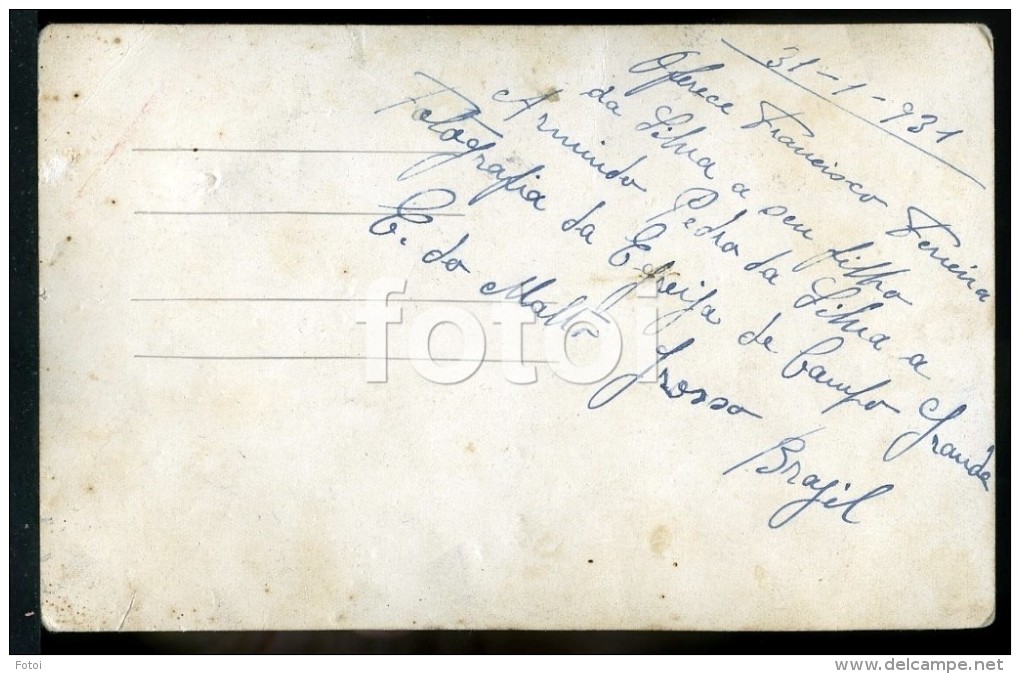 31-1-931
Oferece Francisco Ferreira
da Silva a seu filho
Armindo Pedro da Silva a
Fotografia da Egreija de Campo Grande
E. do Matto Grosso
Brazil
fotoi
Fotoi
www.delcampe.net